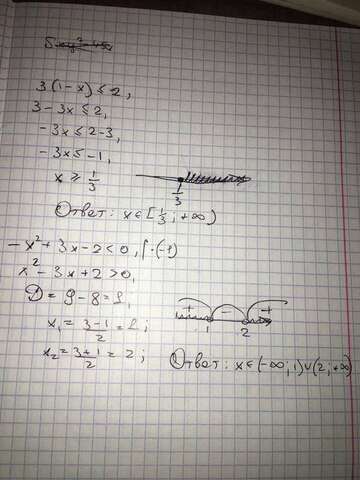 3(1-x) ≤ 2,
3 - 3x ≤ 2,
-3x ≤ 2-3,
-3x ≤ -1,
x ≥ 1/3
1/3
Ответ: x ∈ [1/3; +∞)
-x² + 3x - 2 < 0, | · (-1)
x² - 3x + 2 > 0,
D = 9 - 8 = 1,
x₁ = (3-1)/2 = 1;
+ - +
1 2
x₂ = (3+1)/2 = 2;
Ответ: x ∈ (-∞; 1) ∪ (2; +∞